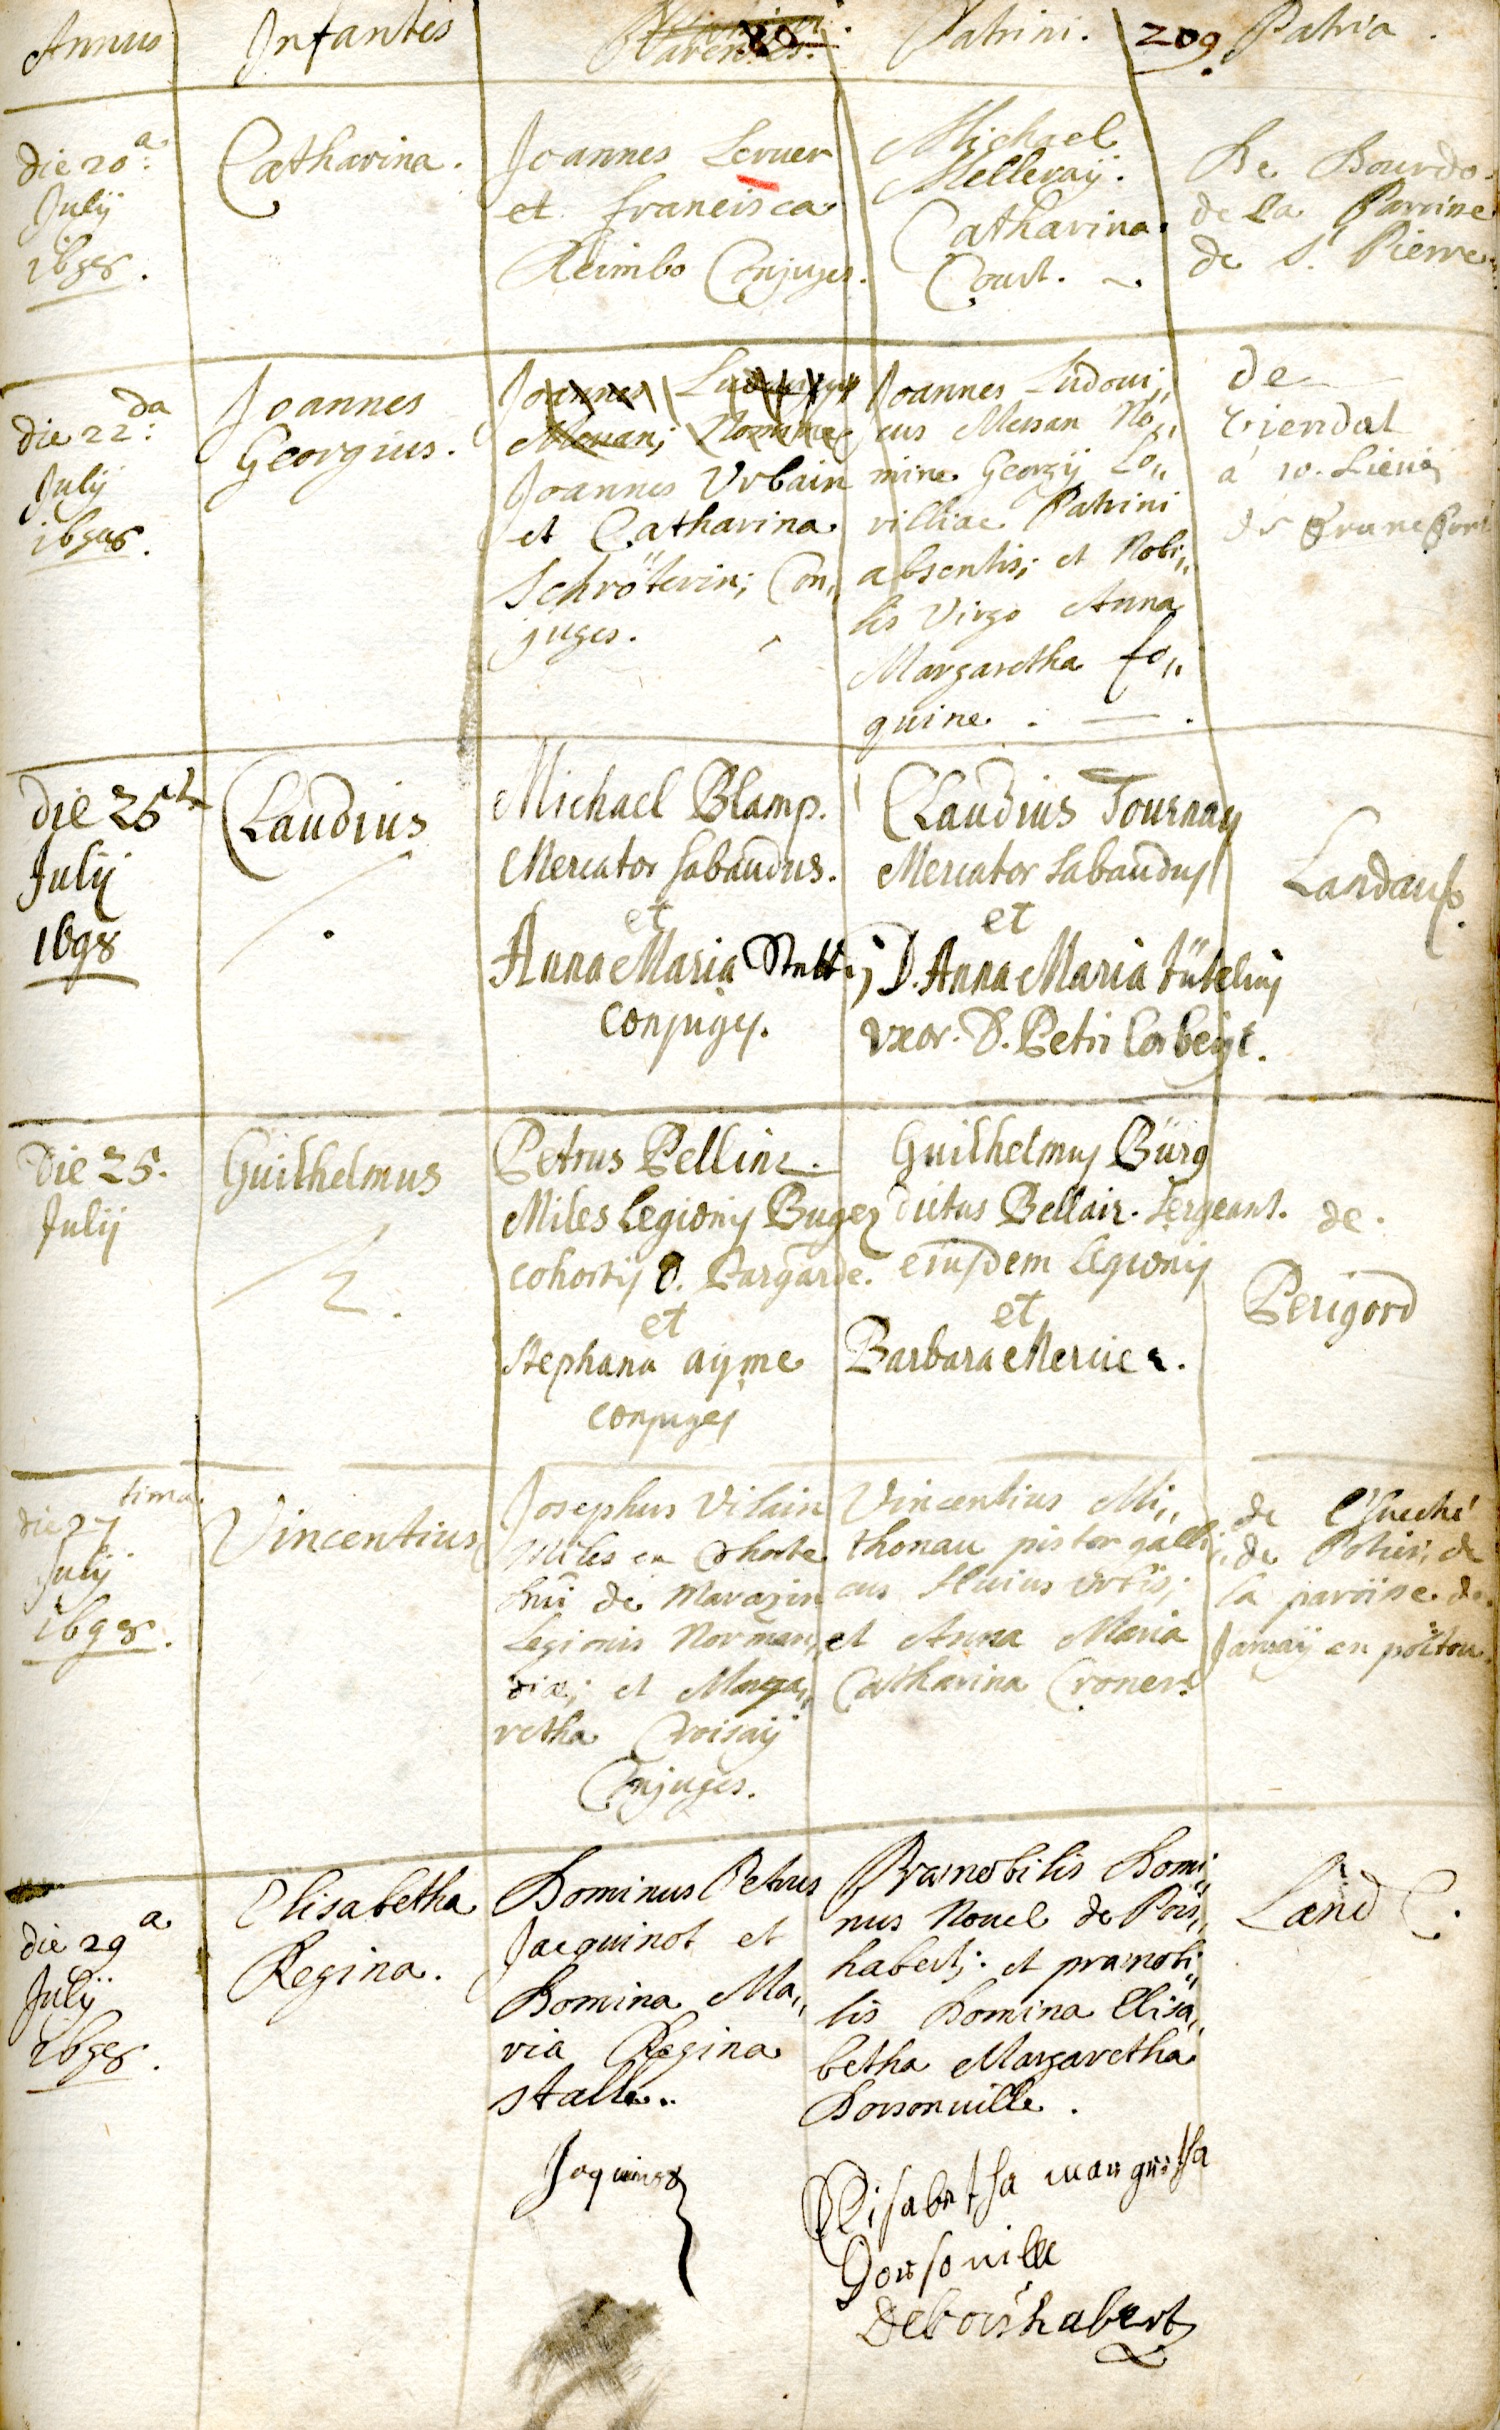 Annus Infantes Parentes. Patrini. 209. Patria.
die 20a.
July
1698.
Catharina.
Joannes Leruer
et francisca
Reimbo Conjuges.
Michael
Melleraÿ.
Catharina
Court.
De Bourdo.
de La Paroine
de St. Pierre
die 22da:
July
1698.
Joannes
Georgius.
Joannes Urbain
et Catharina
Schröterin; Con„
juges.
Joannes Ludoui„
cus Mesan No„
mine Georgÿ Lo„
villiae Patrini
absentis; et Nobi„
lis Virgo Anna
Margaretha fo„
quine.
de
Viendal
à 10. Lieue
de Francfort
die 25ta
Julÿ
1698
Claudius
Michael Blamp.
Mercator Sabaudus.
et
Anna Maria
conjuges.
Claudius Tournay
Mercator Sabaudus
et
D. Anna Maria tütelin
uxor. D. Petri Corbeÿt.
Landau
Die 25.
Julÿ
Guilhelmus
2.
Petrus Pelline.
Miles Legionis Bugey
cohortis D. Pargarde.
et
Stephana ayme
conjuges
Guilhelmus Bürg
dictus Bellair. Sergeant.
eiusdem Legionis
et
Barbara Mercier.
de
Perigord
die 27tima.
July
1698.
Vincentius
Josephus Vilain
Miles en Cohorte
Dni de Marazin
Legionis Norman„
diæ; et Marga„
retha Croisaÿ
Conjuges.
Vincentius Mi„
thonau pistor galli„
cus Huius Urbis;
et Anna Maria
Catharina Croners
de l'Eueché
de Potier, de
la paroisse de
Jarsaÿ en poitou.
die 29a
Julÿ
1698.
Elisabetha
Regina.
Dominus Petrus
Jacquinot et
Domina Ma„
ria Regina
Stalle..
Prænobilis Domi„
nus Nouel de Bois„
habert; et prænobi„
lis Domina Elisa„
betha Margaretha
Dorsonuille.
Land
Jaquinot
Elisabetha margretha
Dorsonuille
Deboishabert